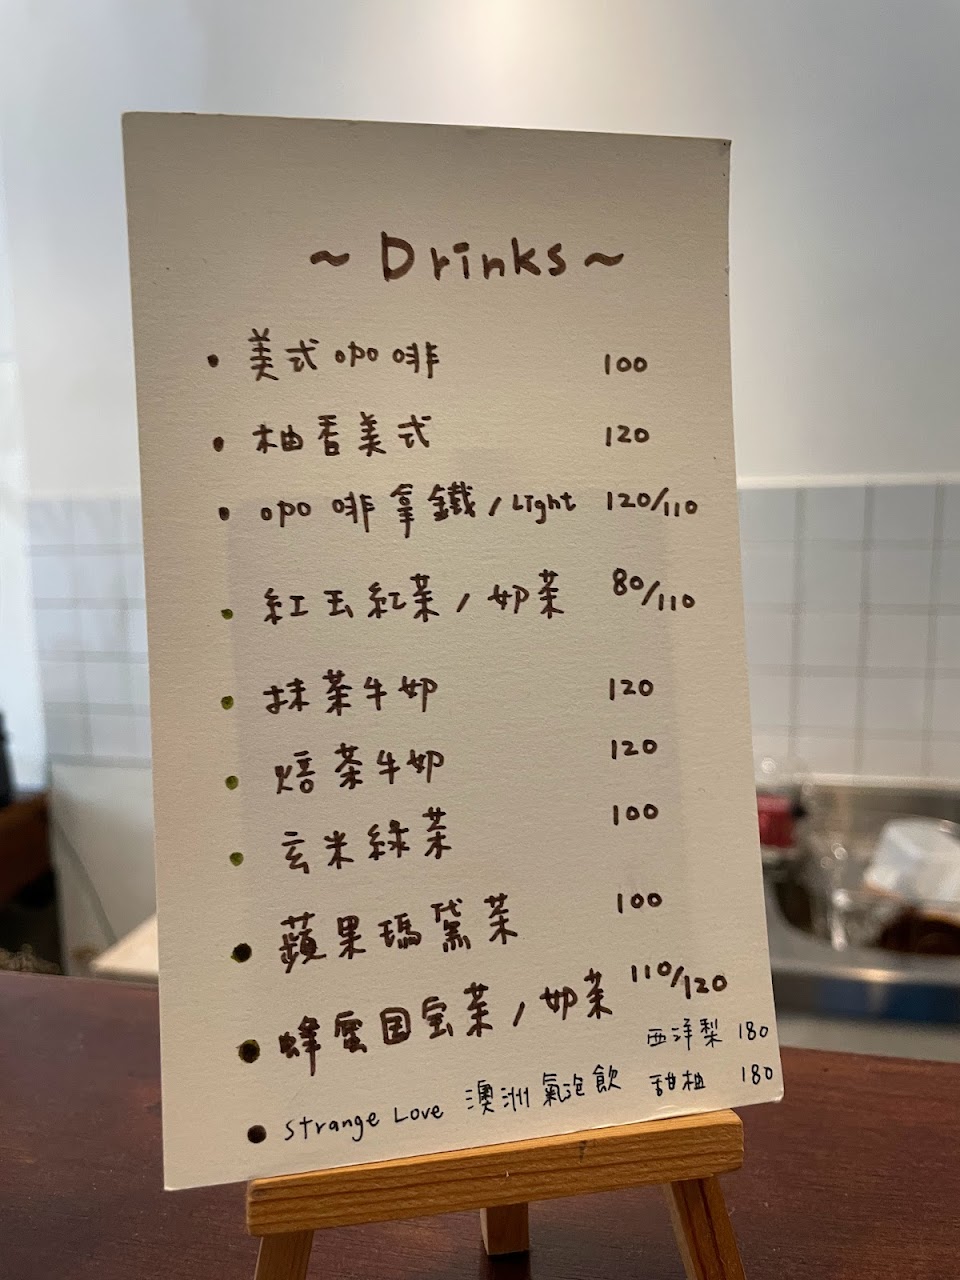 ~ Drinks ~
• 美式咖啡 100
• 柚香美式 120
• 咖啡拿鐵/Light 120/110
• 紅玉紅茶/奶茶 80/110
• 抹茶牛奶 120
• 焙茶牛奶 120
• 玄米綠茶 100
• 蘋果瑪黛茶 100
• 蜂蜜国宝茶/奶茶 110/120
西洋梨 180
• Strange Love 澳洲氣泡飲 甜柚 180